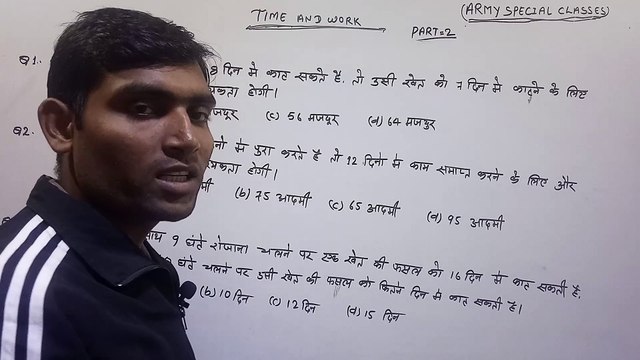 TIME AND WORK
(ARMY SPECIAL CLASSES)
PART=2
Q1.
8 दिन मे काट सकते है, तो उसी खेत को 7 दिन मे काटने के लिए
होगी।
मजदूर (c) 56 मजदूर (d) 64 मजदूर
Q2.
मे पुरा करते है तो 12 दिनो मे काम समाप्त करने के लिए और
होगी।
(b) 75 आदमी (c) 65 आदमी (d) 95 आदमी
9 घंटे रोजाना चलने पर एक खेत की फसल को 16 दिन मे काट सकती है,
घंटे चलने पर उसी खेत की फसल को कितने दिन मे काट सकती है।
(b) 10 दिन (c) 12 दिन (d) 15 दिन